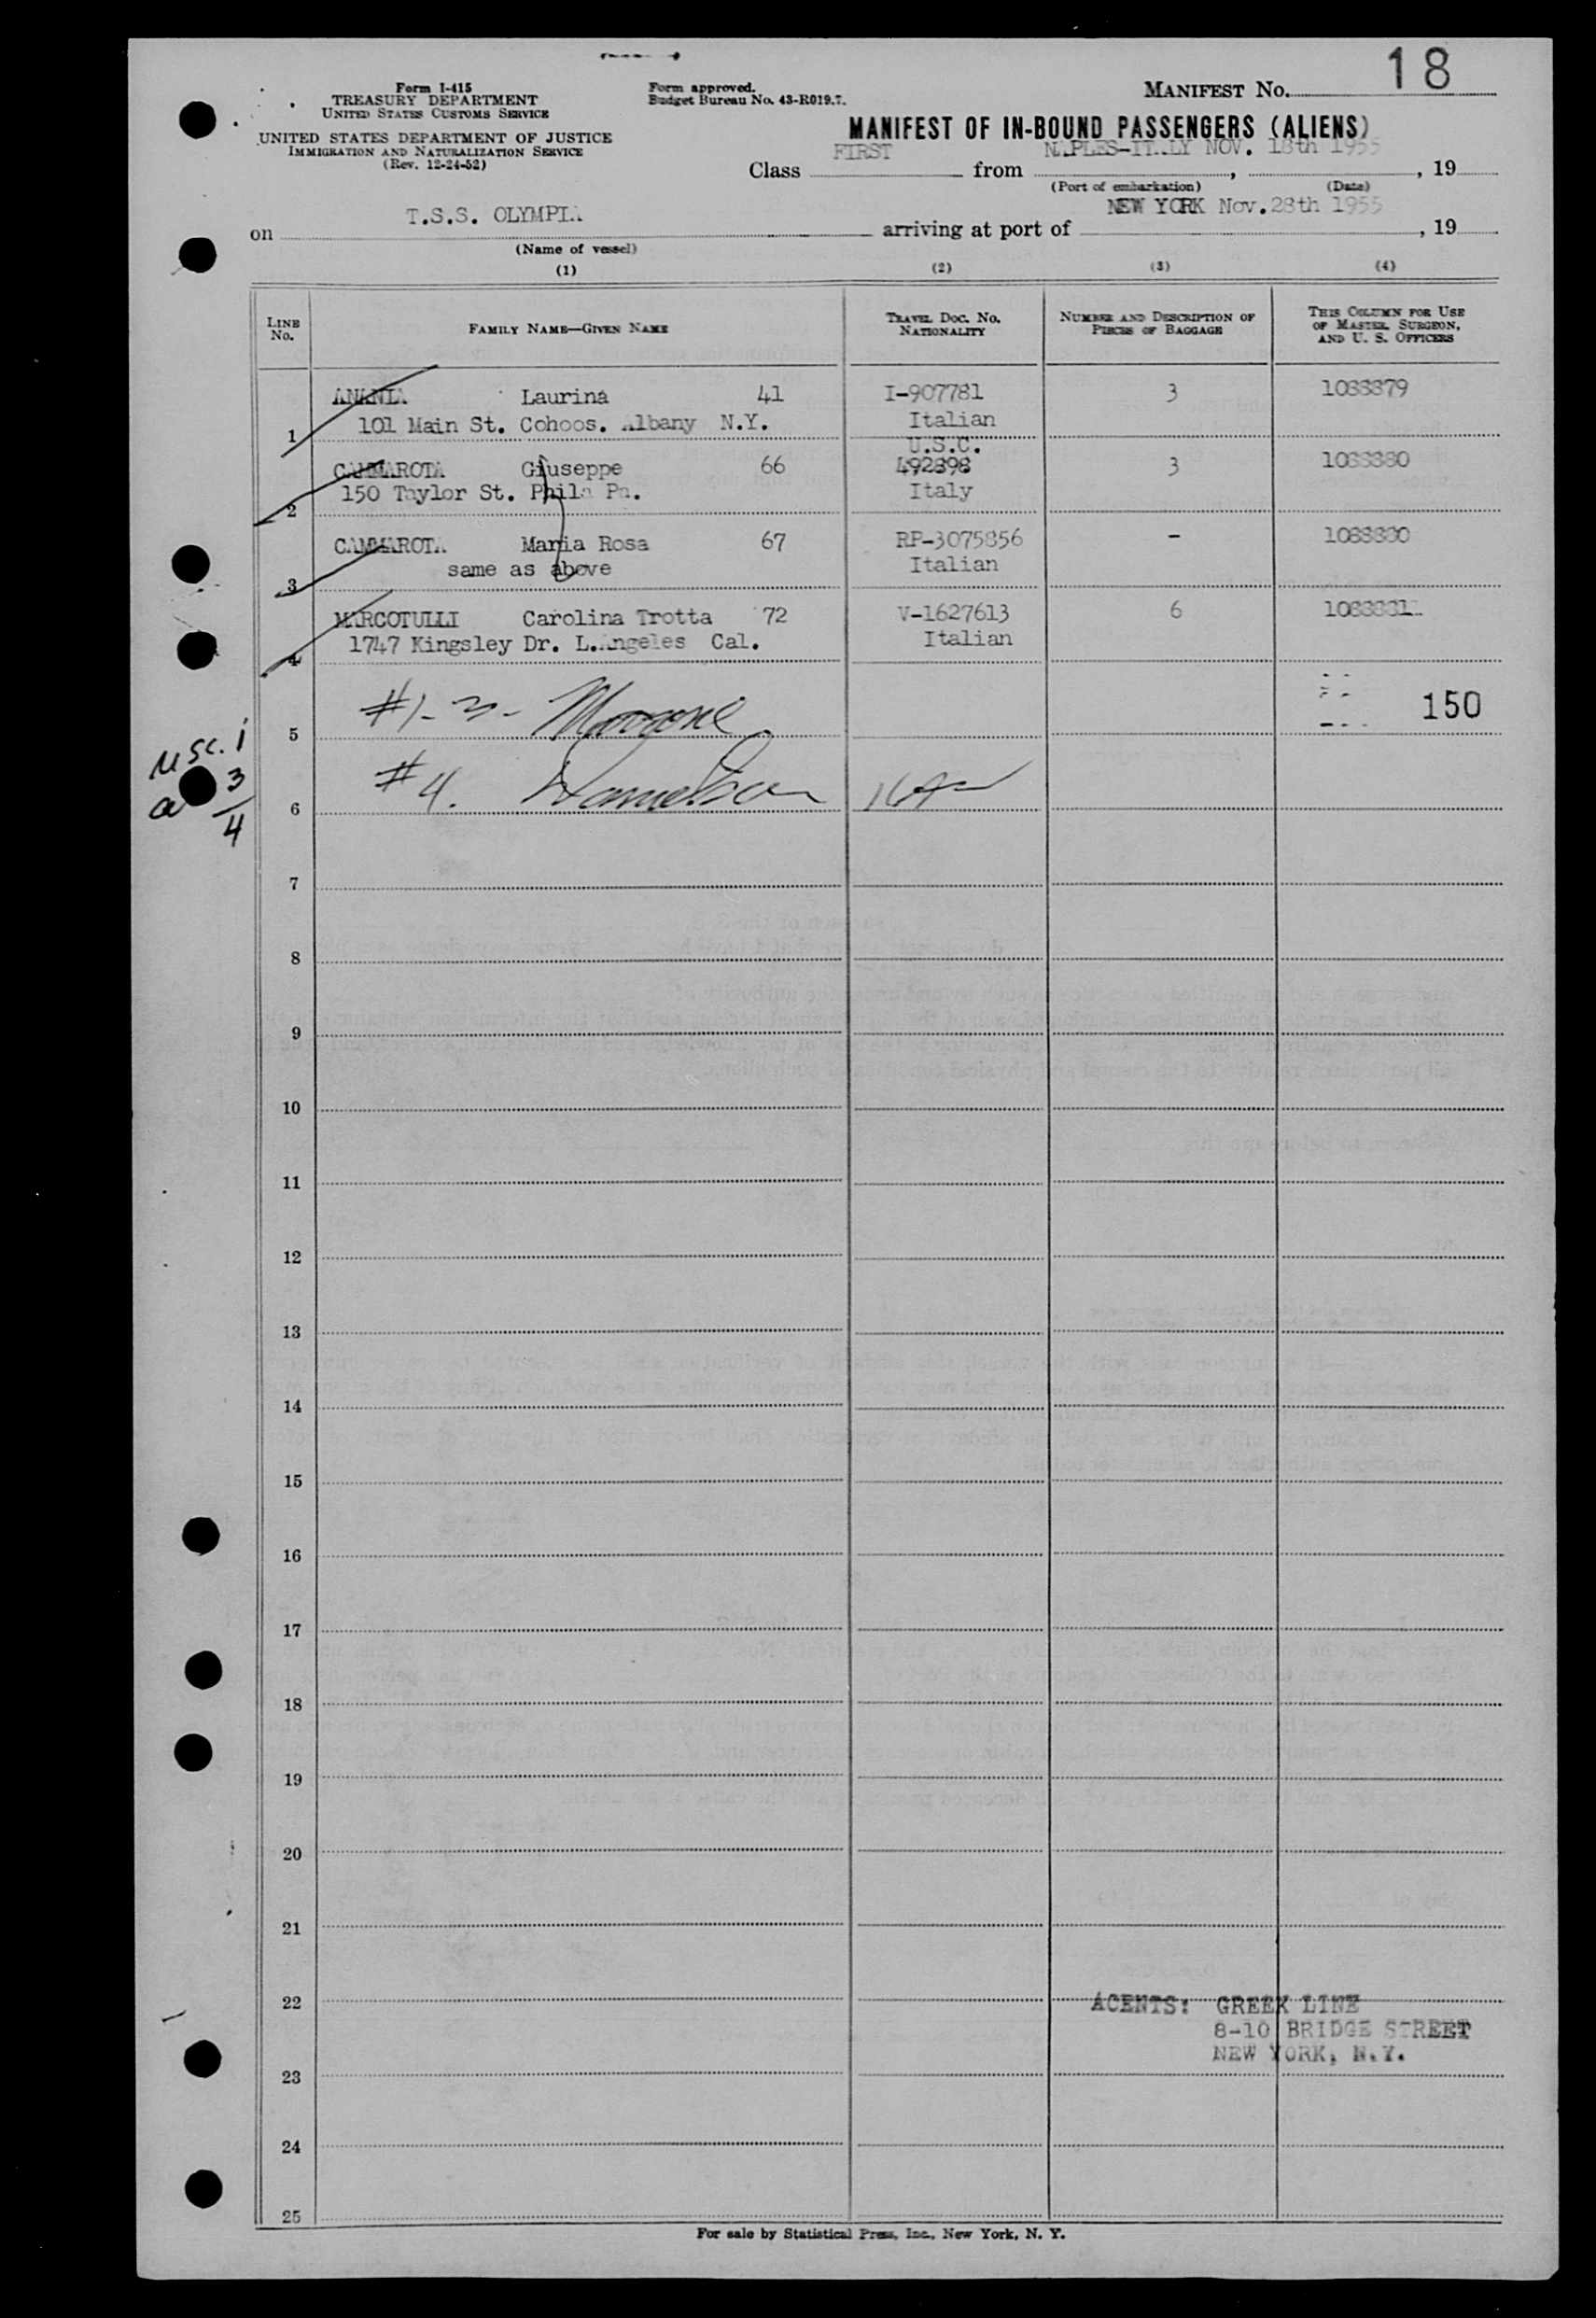 18
Form I-415
TREASURY DEPARTMENT
UNITED STATES CUSTOMS SERVICE
UNITED STATES DEPARTMENT OF JUSTICE
IMMIGRATION AND NATURALIZATION SERVICE
(Rev. 12-24-52)
Form approved.
Budget Bureau No. 43-R019.7.
MANIFEST No.
MANIFEST OF IN-BOUND PASSENGERS (ALIENS)
Class FIRST from NAPLES-ITALY NOV. 18th 1955, 19
(Port of embarkation) (Date)
on T.S.S. OLYMPIA arriving at port of NEW YORK Nov.28th 1955, 19
(Name of vessel)
(1) (2) (3) (4)
LINE No. FAMILY NAME—GIVEN NAME TRAVEL DOC. NO. NATIONALITY NUMBER AND DESCRIPTION OF PIECES OF BAGGAGE THIS COLUMN FOR USE OF MASTER, SURGEON, AND U. S. OFFICERS
ANANIA Laurina 41 I-907781 3 1088879
1 101 Main St. Cohoos. Albany N.Y. Italian
U.S.C.
CAMMAROTA Giuseppe 66 492898 3 1088880
2 150 Taylor St. Phila Pa. Italy
CAMMAROTA Maria Rosa 67 RP-3075856 - 1088880
3 same as above Italian
MARCOTULLI Carolina Trotta 72 V-1627613 6 1088881
4 1747 Kingsley Dr. L.Angeles Cal. Italian
5 #1-3- 150
6 #4.
usc. 1
a 3
4
7
8
9
10
11
12
13
14
15
16
17
18
19
20
21
22
AGENTS: GREEK LINE
8-10 BRIDGE STREET
NEW YORK, N.Y.
23
24
25
For sale by Statistical Press, Inc., New York, N. Y.